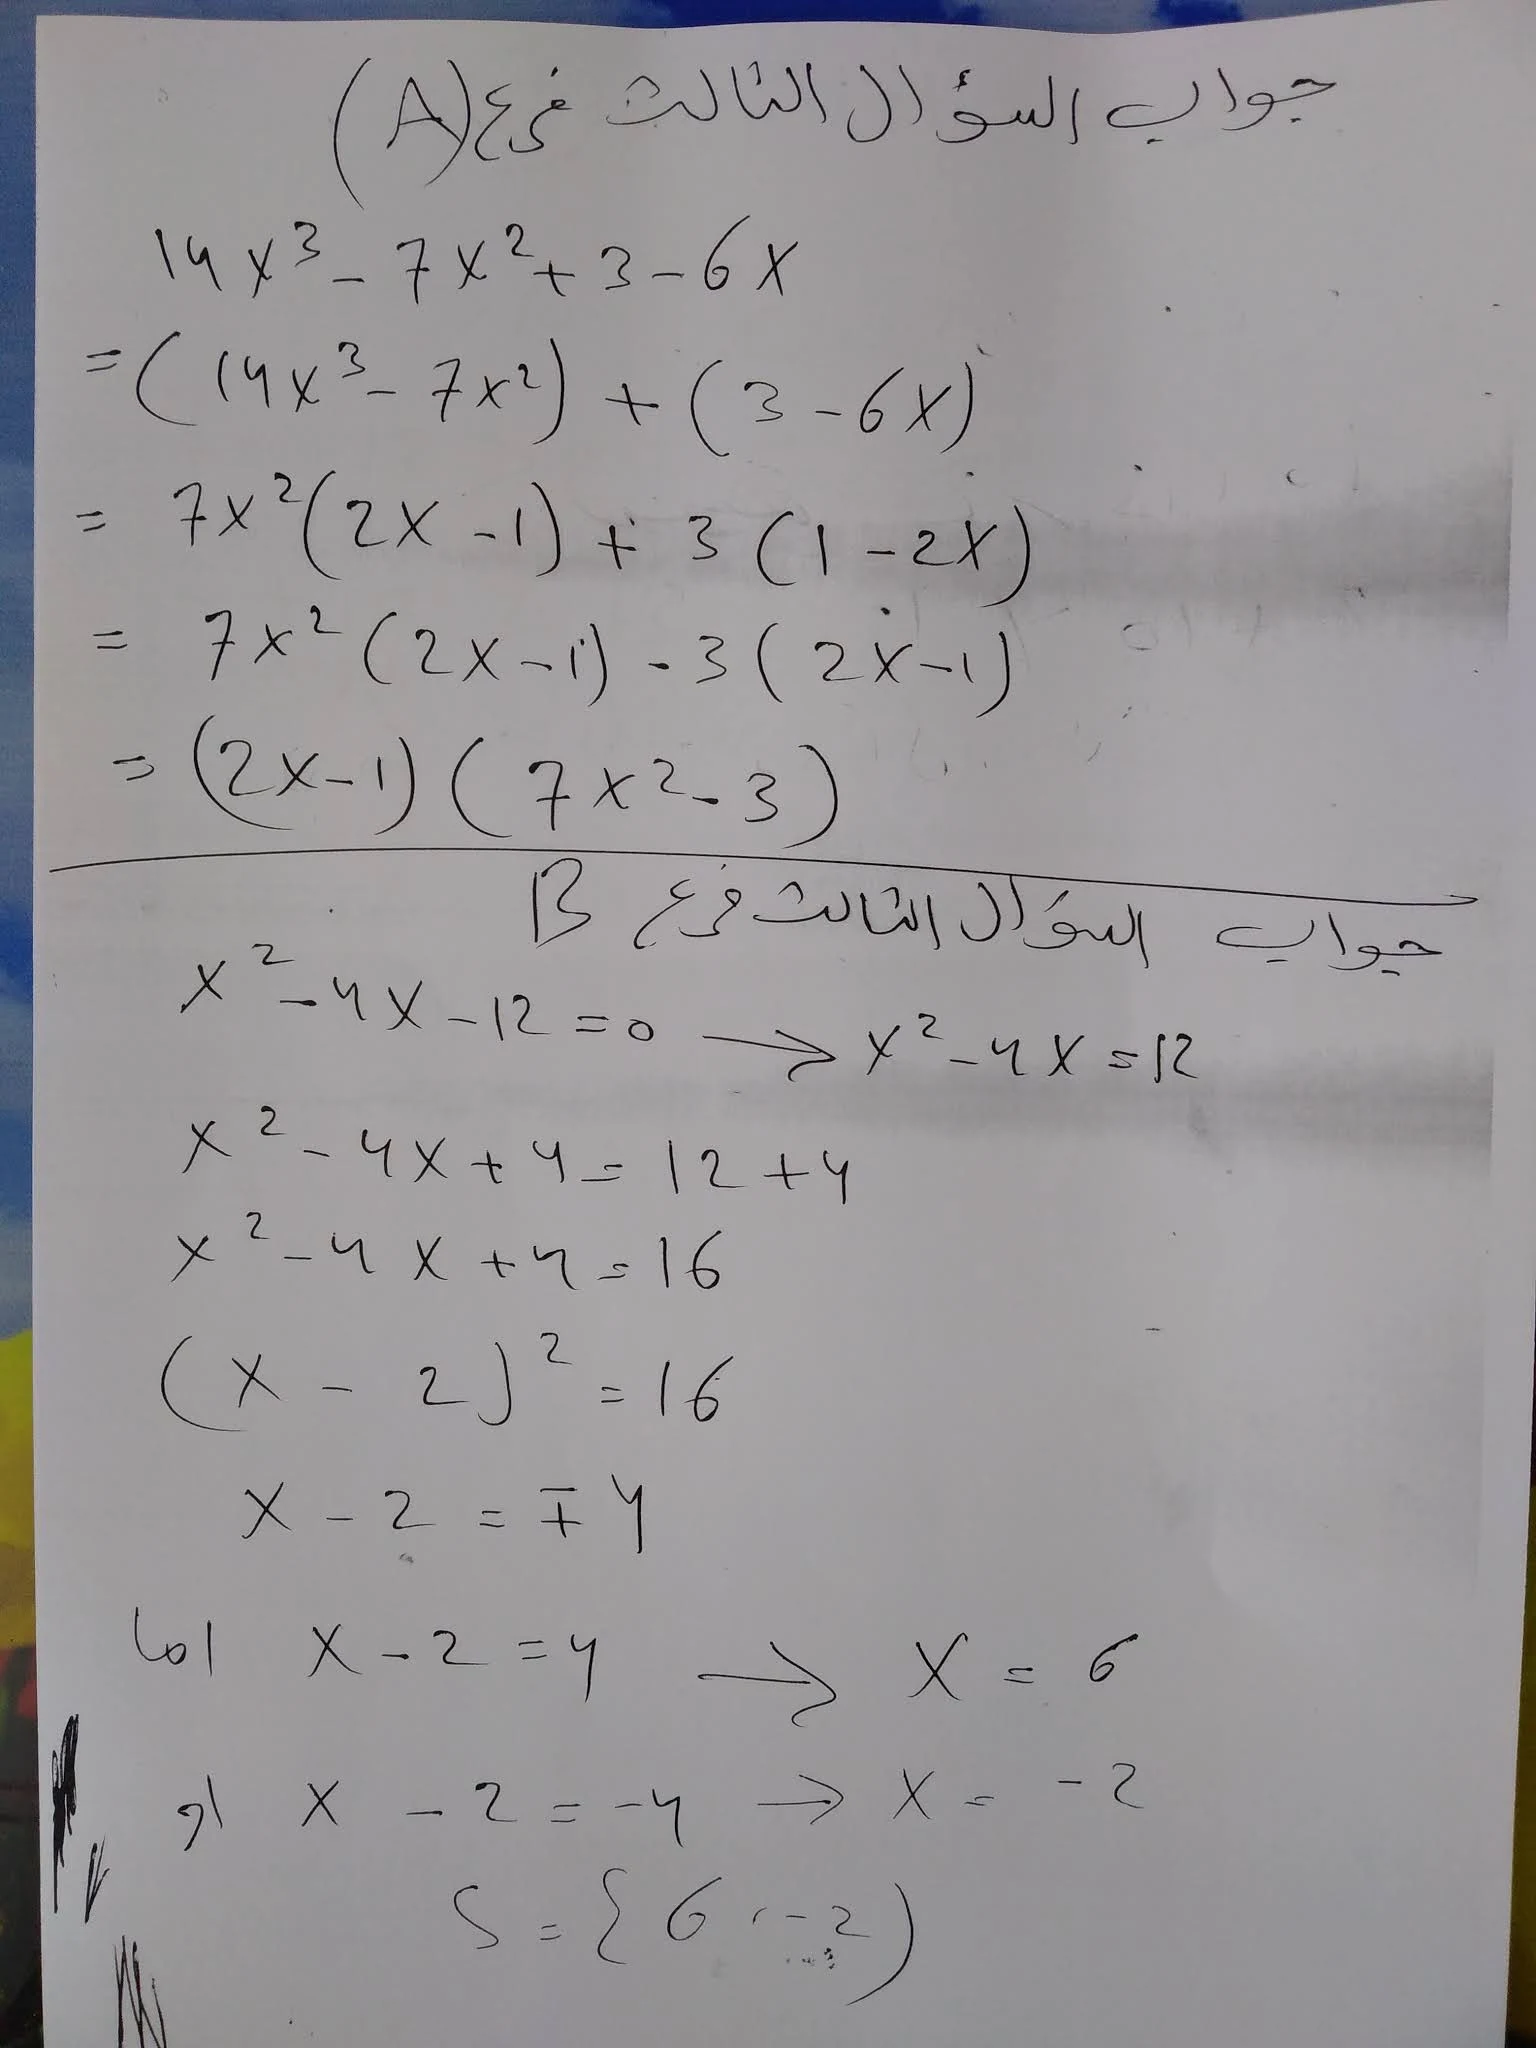 جواب السؤال الثالث فرع (A)
14x³ - 7x² + 3 - 6x
= (14x³ - 7x²) + (3 - 6x)
= 7x² (2x - 1) + 3 (1 - 2x)
= 7x² (2x - 1) - 3 (2x - 1)
= (2x - 1) (7x² - 3)
جواب السؤال الثالث فرع B
x² - 4x - 12 = 0 → x² - 4x = 12
x² - 4x + 4 = 12 + 4
x² - 4x + 4 = 16
(x - 2)² = 16
x - 2 = ∓ 4
اما x - 2 = 4 → x = 6
او x - 2 = -4 → x = -2
S = {6 , -2)